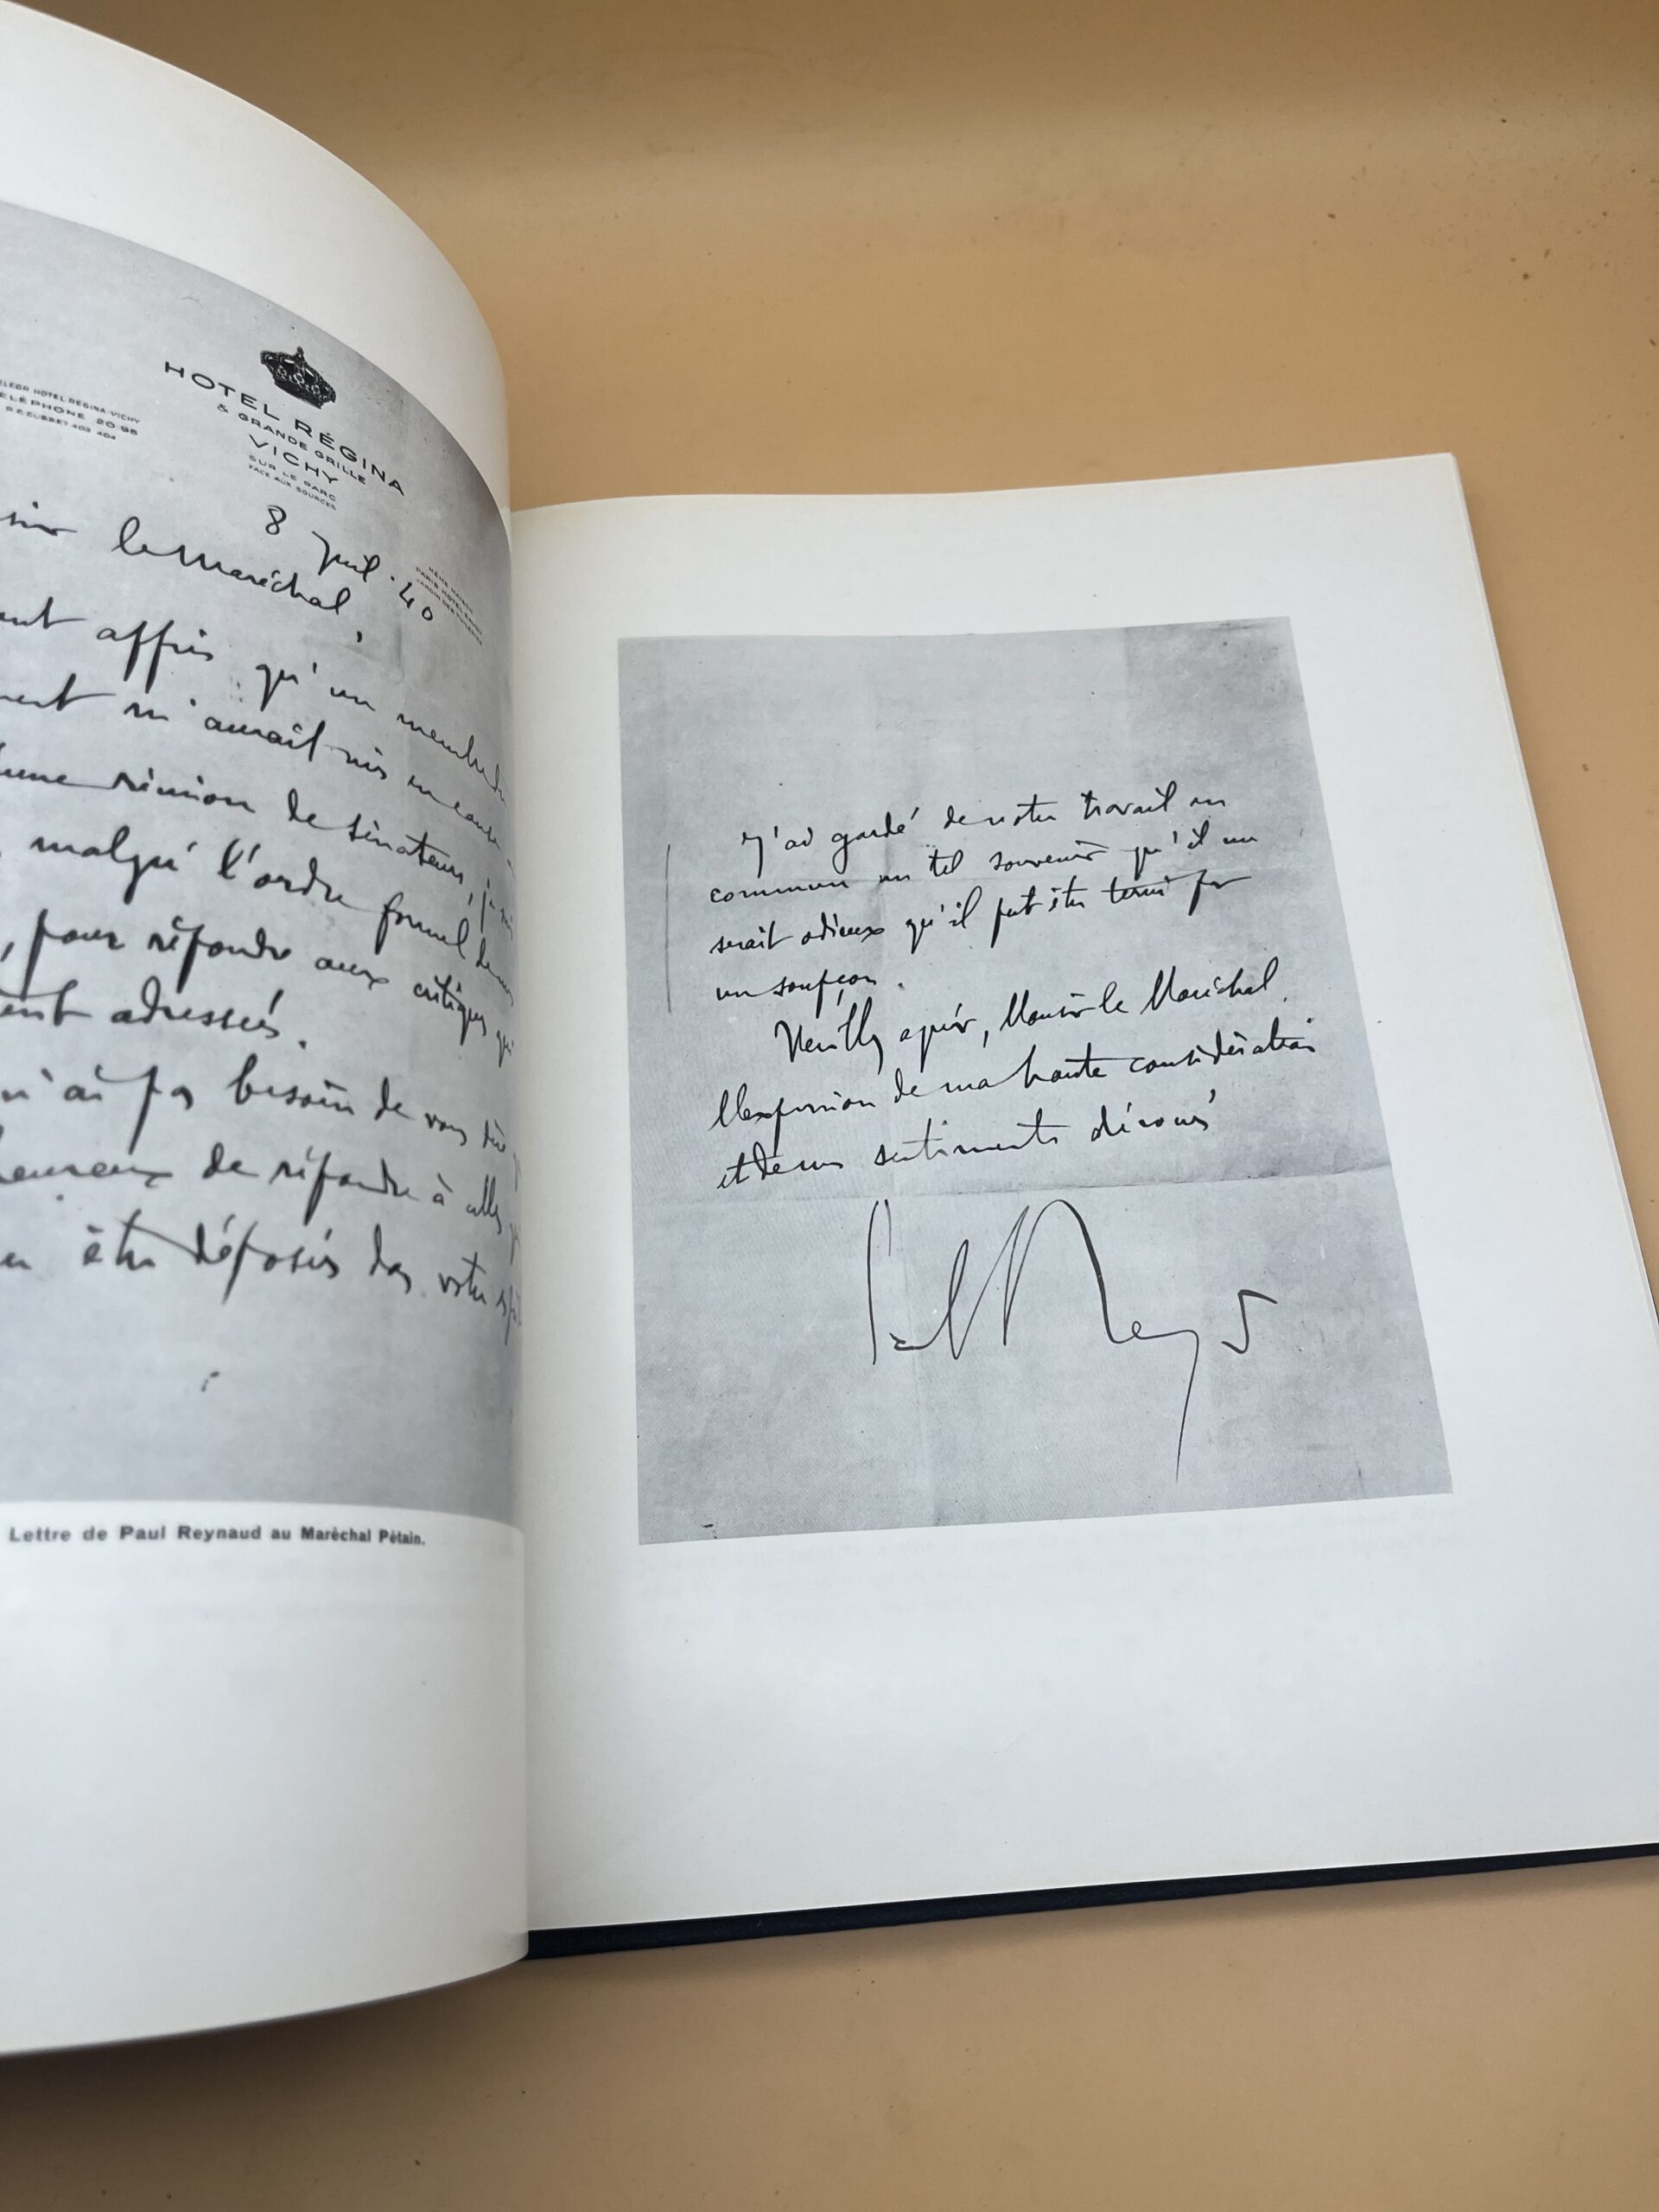 HOTEL RÉGINA
& GRANDE GRILLE
VICHY
SUR LE PARC
FACE AUX SOURCES
HOTEL REGINA-VICHY
TÉLÉPHONE 20-95
8 Juil. 40
le Maréchal,
qu'un membre
m'aurait mis en cause
une réunion de sénateurs, je
malgré l'ordre formel de
, pour répondre aux critiques qui
adressées.
n'ai pas besoin de vous dire
heureux de répondre à celles
être déposés dans votre
Lettre de Paul Reynaud au Maréchal Pétain.
J'ai gardé de notre travail en
commun un tel souvenir qu'il me
serait odieux qu'il put être terni par
un soupçon.
Veuillez agréer, Monsieur le Maréchal
l'expression de ma haute considération
et de mes sentiments dévoués
Paul Reynaud